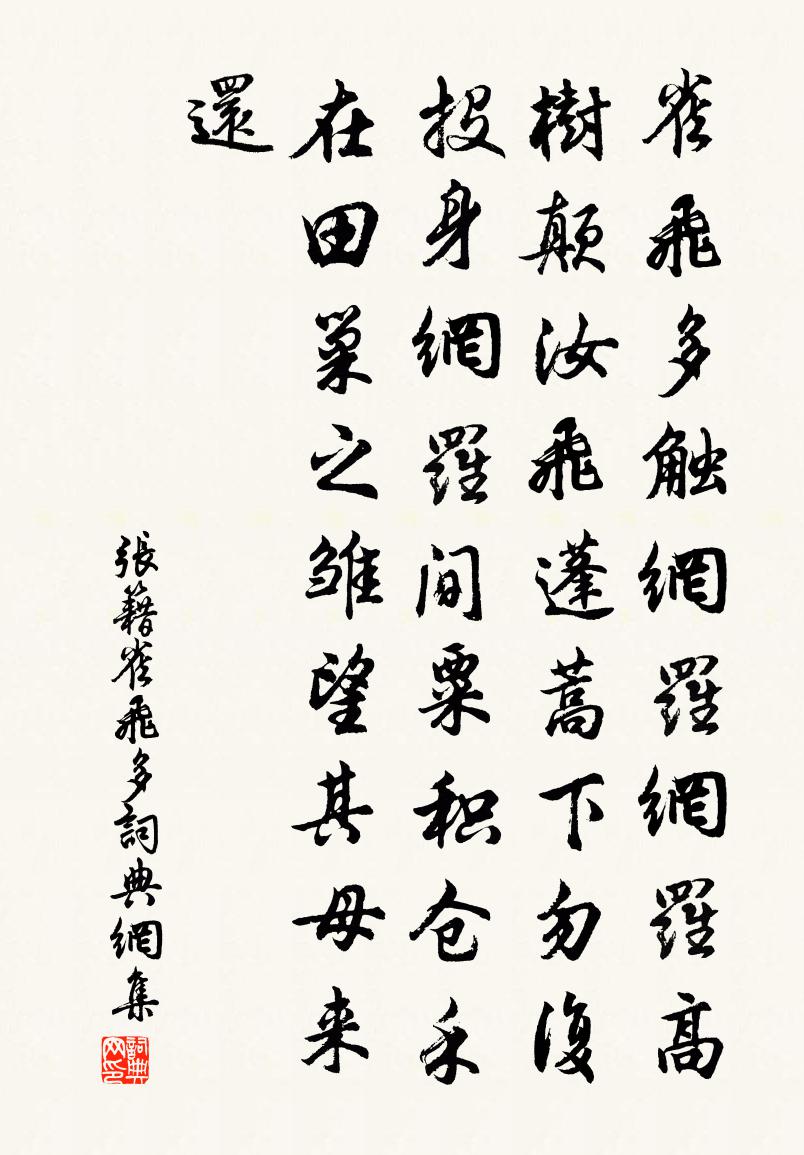 雀飛多触網羅網羅高
樹顛汝飛蓬蒿下勿復
投身網羅间粟积仓禾
在田巢之雏望其母来
還
張籍雀飛多詞典網集
詞典网印